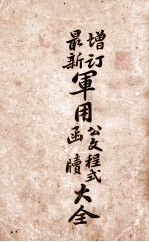 增訂
最新
軍用
公文程式
函牘
大全